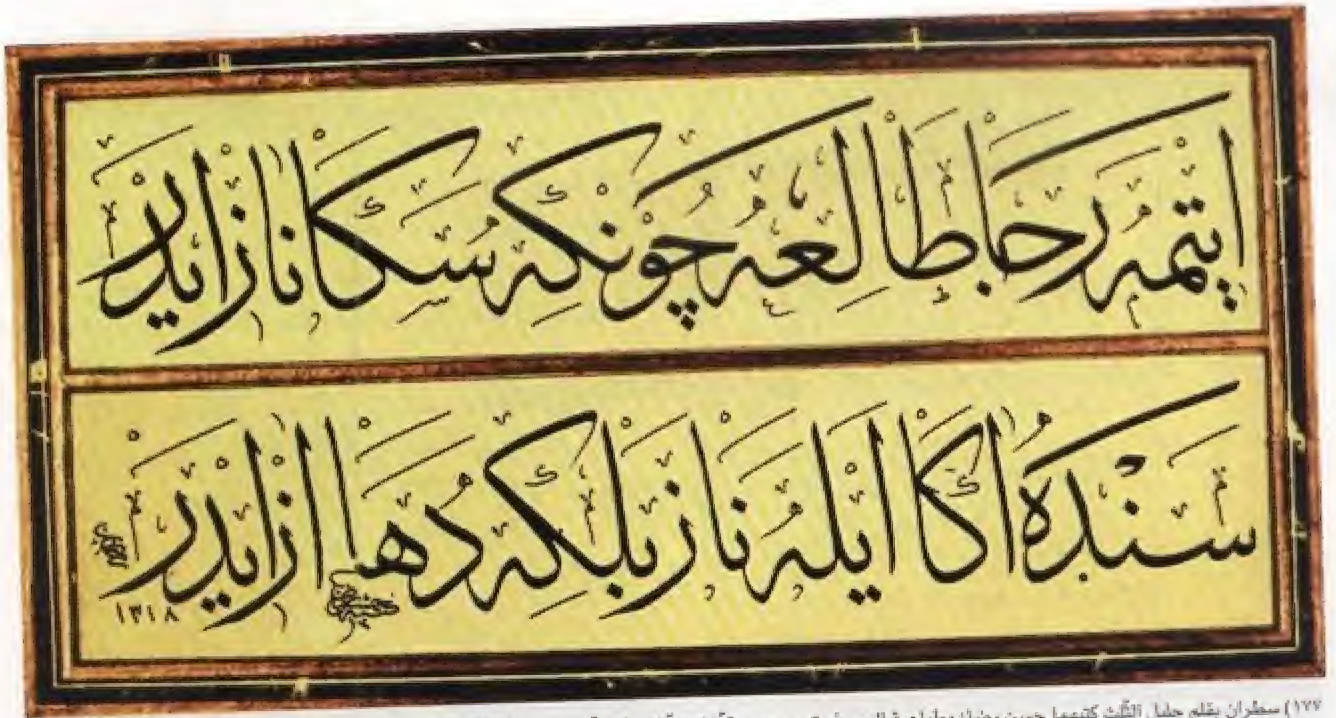 ایتمه رجا طالعه چونکه سکا ناز ایدر
سنده اکا ایله ناز بلکه دها از ایدر
١٣١٨
١٧٧) سطران بقلم جليل الثلث كتبهما